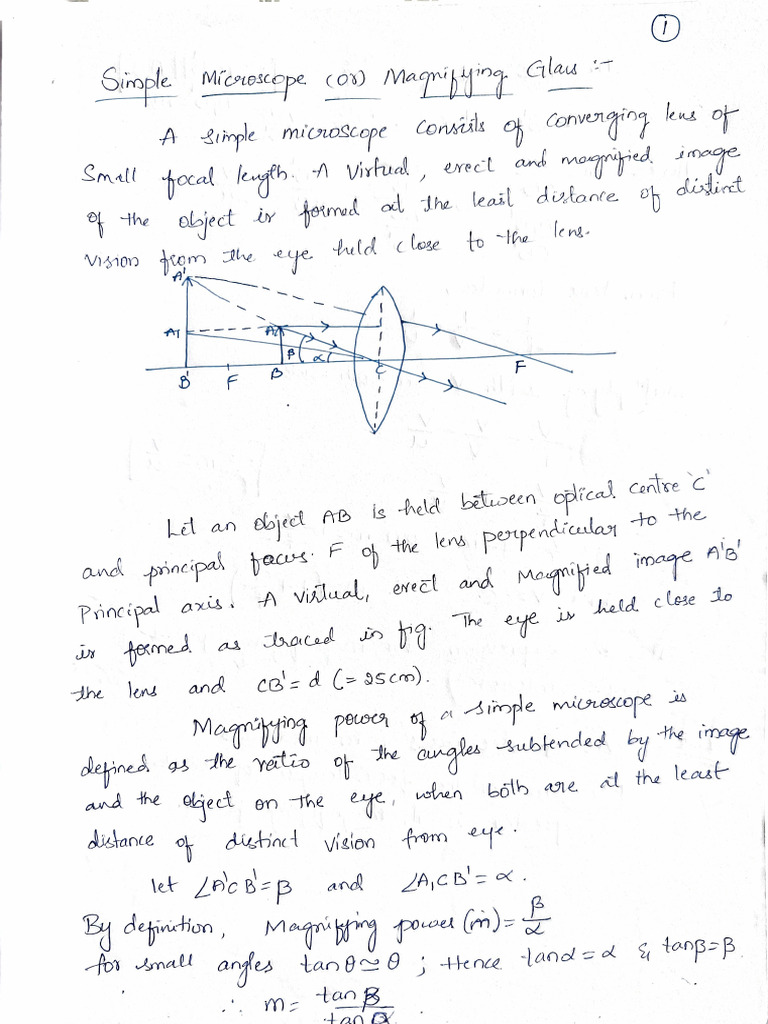 1
Simple Microscope (or) Magnifying Glass :-
A simple microscope consists of converging lens of
Small focal length. A Virtual, erect and magnified image
of the object is formed at the least distance of distinct
vision from the eye held close to the lens.
A'
A1 A
β α C F
B' F B
Let an object AB is held between optical centre 'C'
and principal focus. F of the lens perpendicular to the
Principal axis. A virtual, erect and Magnified image A'B'
is formed as traced in fig. The eye is held close to
the lens and CB' = d (= 25cm).
Magnifying power of a simple microscope is
defined as the ratio of the angles subtended by the image
and the object on the eye, when both are at the least
distance of distinct vision from eye.
let ∠A'CB' = β and ∠A₁CB' = α.
By definition, Magnifying power (m) = β/α
for small angles tanθ ≃ θ ; Hence tanα = α & tanβ = β
∴ m = tan β / tan α